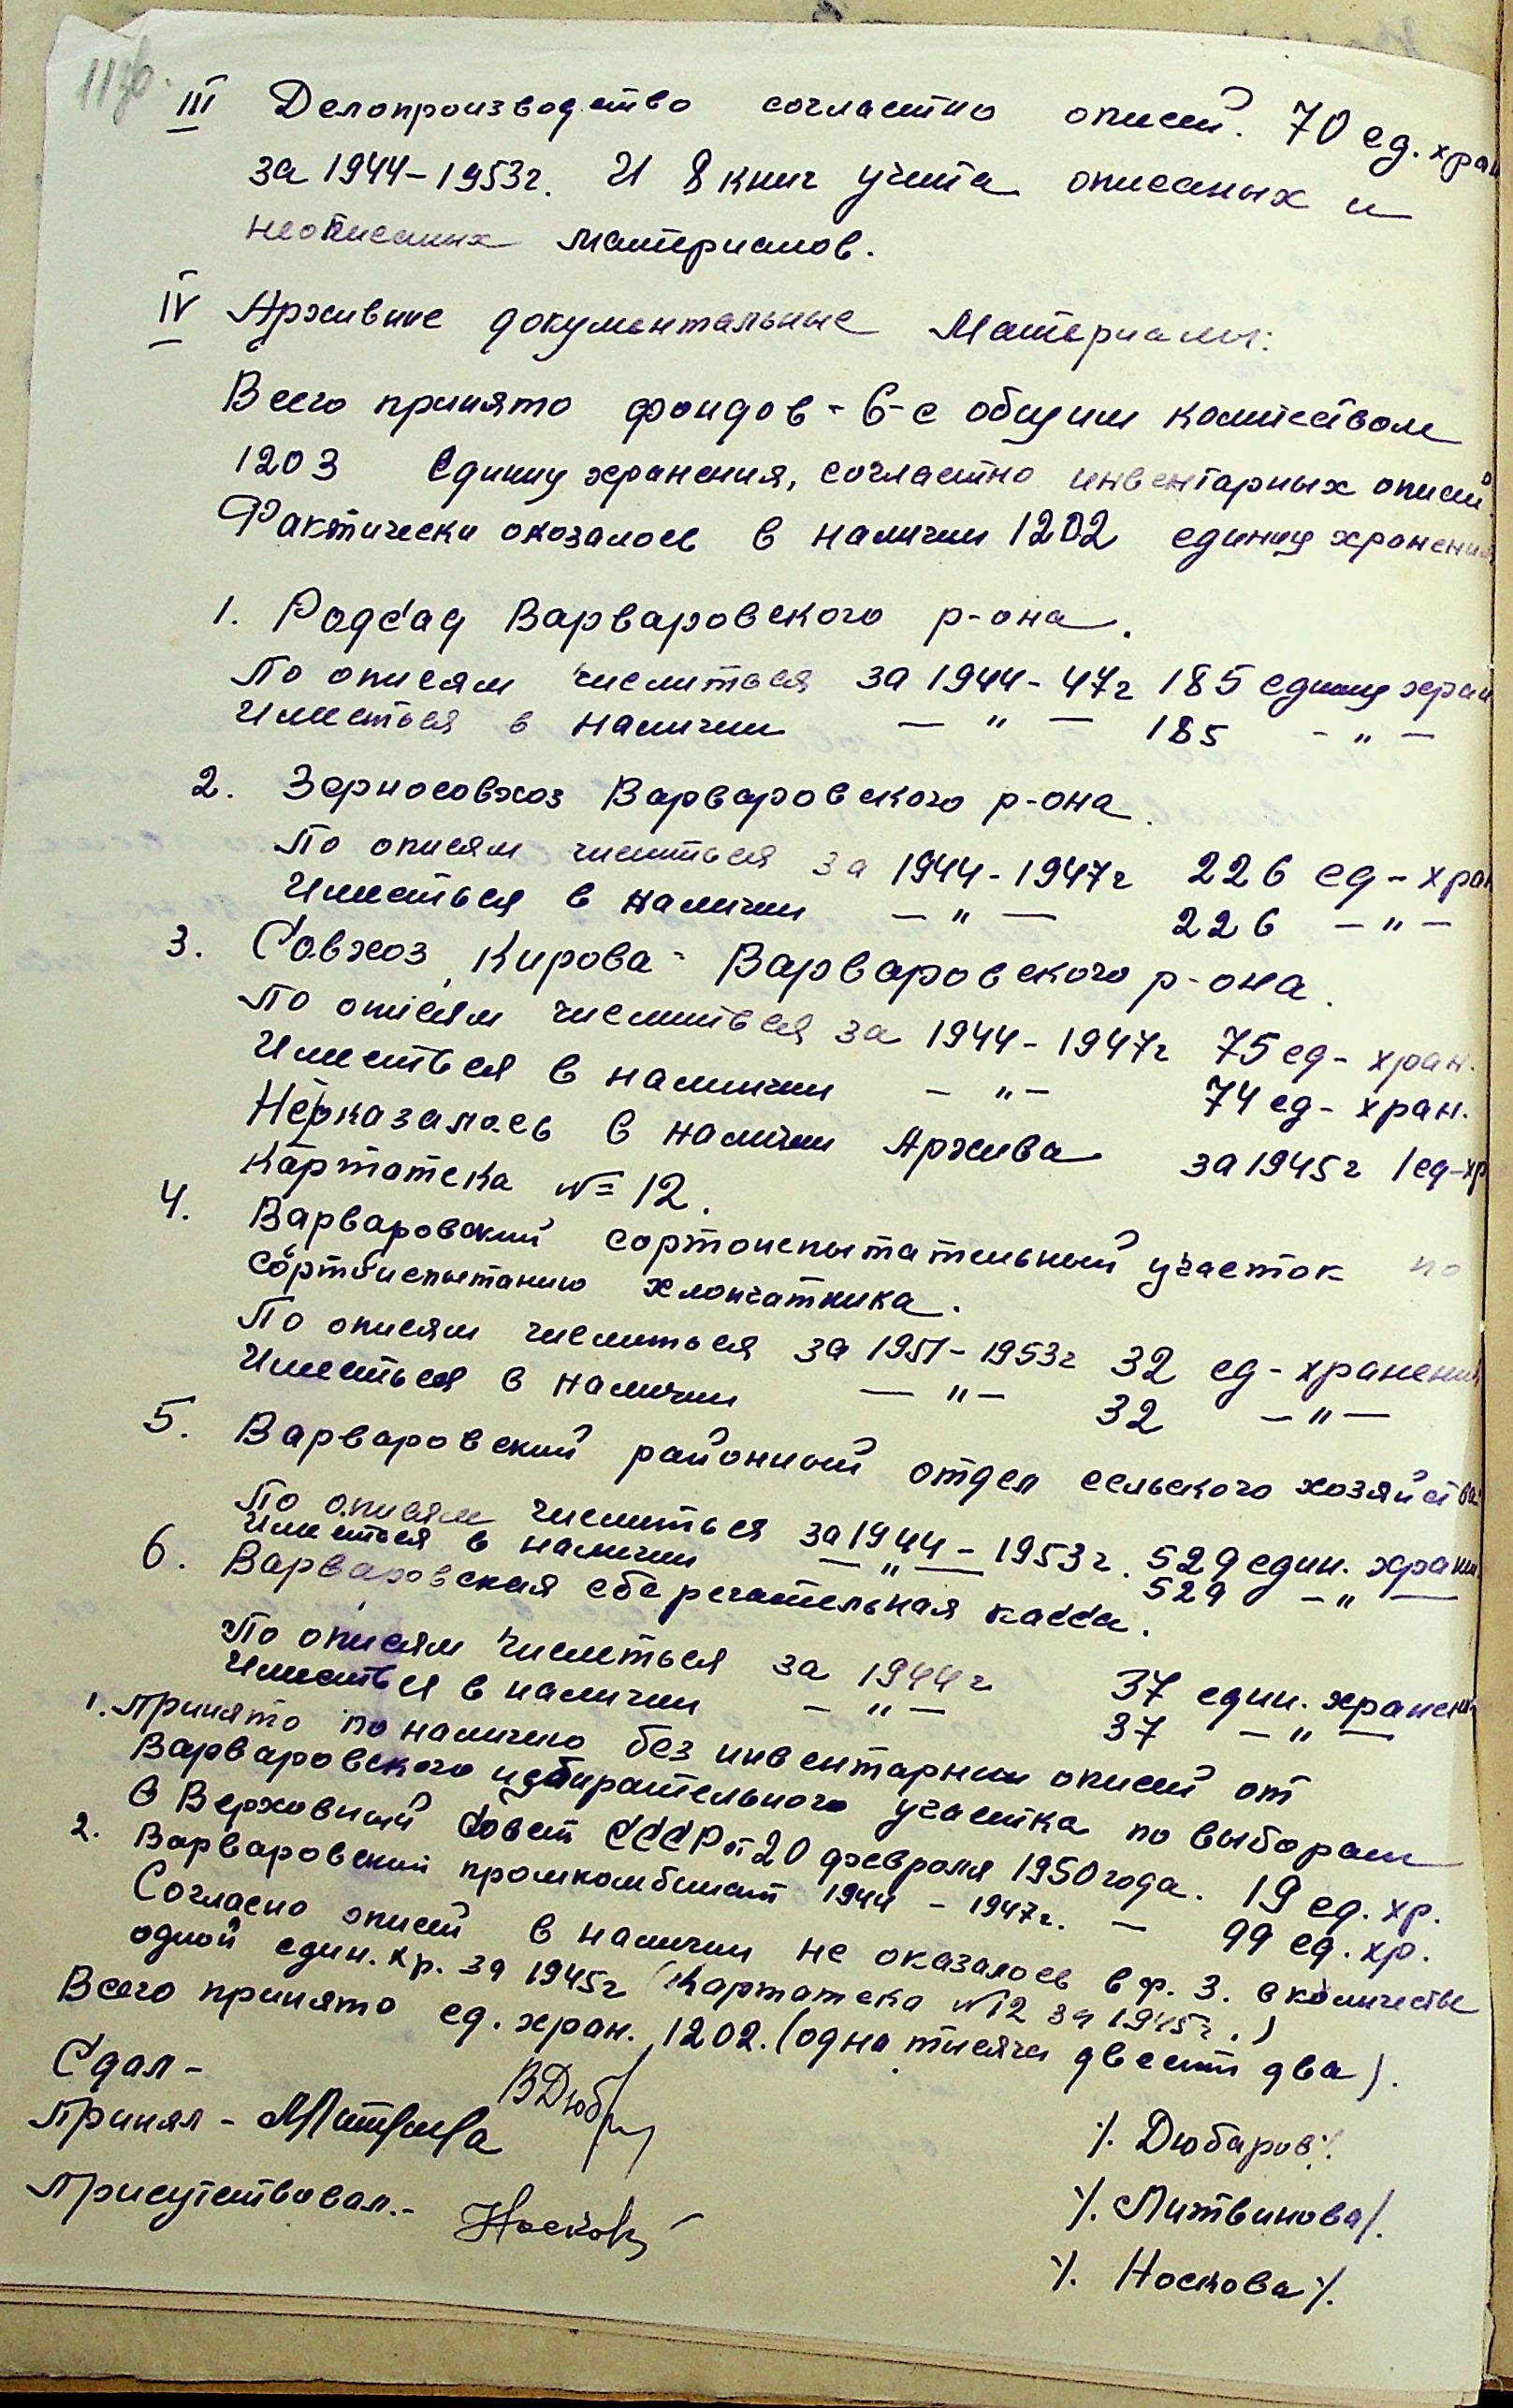 III Делопроизводство согластно описей. 70 ед. хран
за 1944-1953г. И 8 книг учета описаных и
неописанных материалов.
IV Архивные документальные Материалы:
Всего принято фондов - 6 - с общим количеством
1203 Единиц хранения, согластно инвентарных описей.
Фактически оказалось в наличии 1202 единиц хранения
1. Радсад Варваровского р-она.
По описям числиться за 1944-47г 185 единиц хран
Иместься в наличии — " — 185 - " —
2. Зерносовхоз Варваровского р-она.
По описям числиться за 1944-1947г 226 ед-хран
Иместься в наличии — " — 226 — " —
3. Совхоз Кирова - Варваровского р-она.
По описям числиться за 1944-1947г 75 ед-хран.
Иместься в наличии — " — 74 ед-хран.
Неоказалось в наличии Архива за 1945г 1 ед-хр
Картотека № 12.
4. Варваровский сортоиспытательный участок по
сортоиспытанию хлопчатника.
По описям числиться за 1951-1953г 32 ед-хранения
Иместься в наличии — " — 32 — " —
5. Варваровский районный отдел сельского хозяйства
По описям числиться за 1944-1953г. 529 един. хранен.
Иместься в наличии — " — 529 — " —
6. Варваровская сберегательная касса.
По описям числиться за 1944г 37 един. хранен
Иместься в наличии — " — 37 — " —
1. Принято по наличию без инвентарных описей от
Варваровского избирательного участка по выборам
в Верховный Совет СССР от 20 февраля 1950 года. 19 ед. хр.
2. Варваровский промкомбинат 1944 - 1947г. — 99 ед. хр.
Согласно описей в наличии не оказалось в ф. 3. в количестве
одной един. хр. за 1945г (Картотека №12 за 1945г.)
Всего принято ед. хран. 1202. (одна тисяча двести два).
Сдал - /. Дюбаров/.
Принял - Литвинова /. Литвинова/.
Присутствовал. - Носкова /. Носкова/.